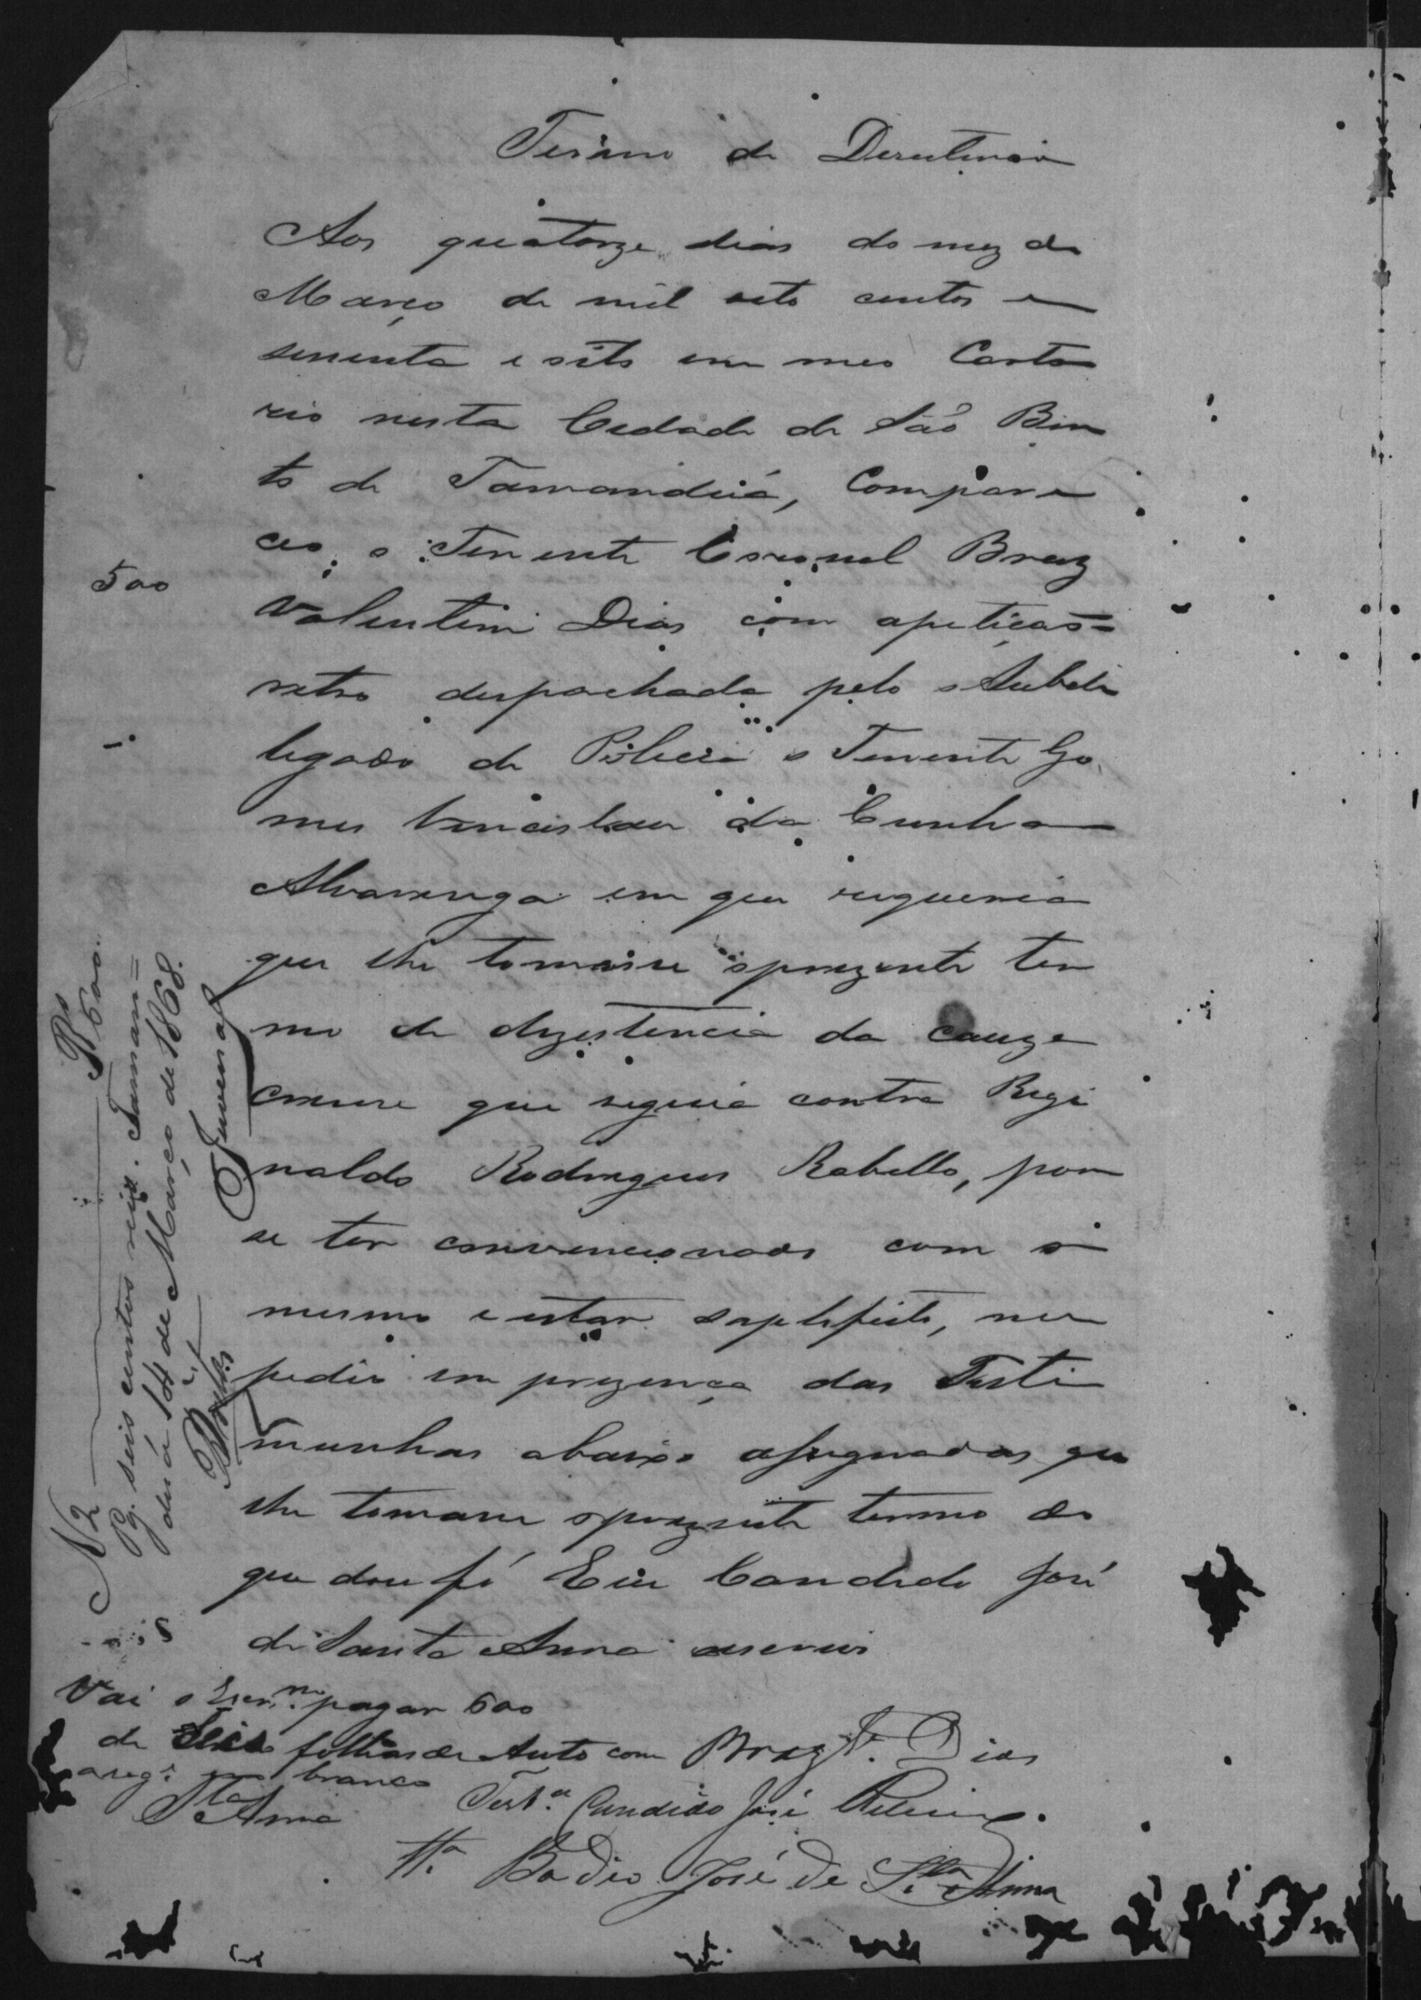 Termo de Dezistencia
Aos quatorze dias do mez de
Março de mil oito centos e
sessenta e oito em meo Carto
rio nesta Cidade de São Ben
to de Tamanduá, Compare
ceo o Tenente Coronel Braz
Valentim Dias com apetição=
retro despachada pelo Subde
legado de Policia o Tenente Go
mes da Cunha
Alvarenga em que requeria
que lhe tomasse oprezente ter
mo de dezistencia da cauza
crime que seguia contra Regi
naldo Rodrigues Rabello, por
se ter convencionado com o
mesmo e estar satisfeito, me
pedio em prezença das Teste
munhas abaixo assignadas que
lhe tomasse oprezente termo do
que dou fé Eu Candido José
de Santa Anna escrevi
Braz V. Dias
Test.a Candido José Ribeiro.
T.a José de S.ta Anna
500
N 2 Rs 600.
Pg. seis centos reis. Taman=
duá 14 de Março de 1868.
Juvenal
Vai o Escr.m pagar 600
de Seis folhas de Auto com
branco
S.ta Anna